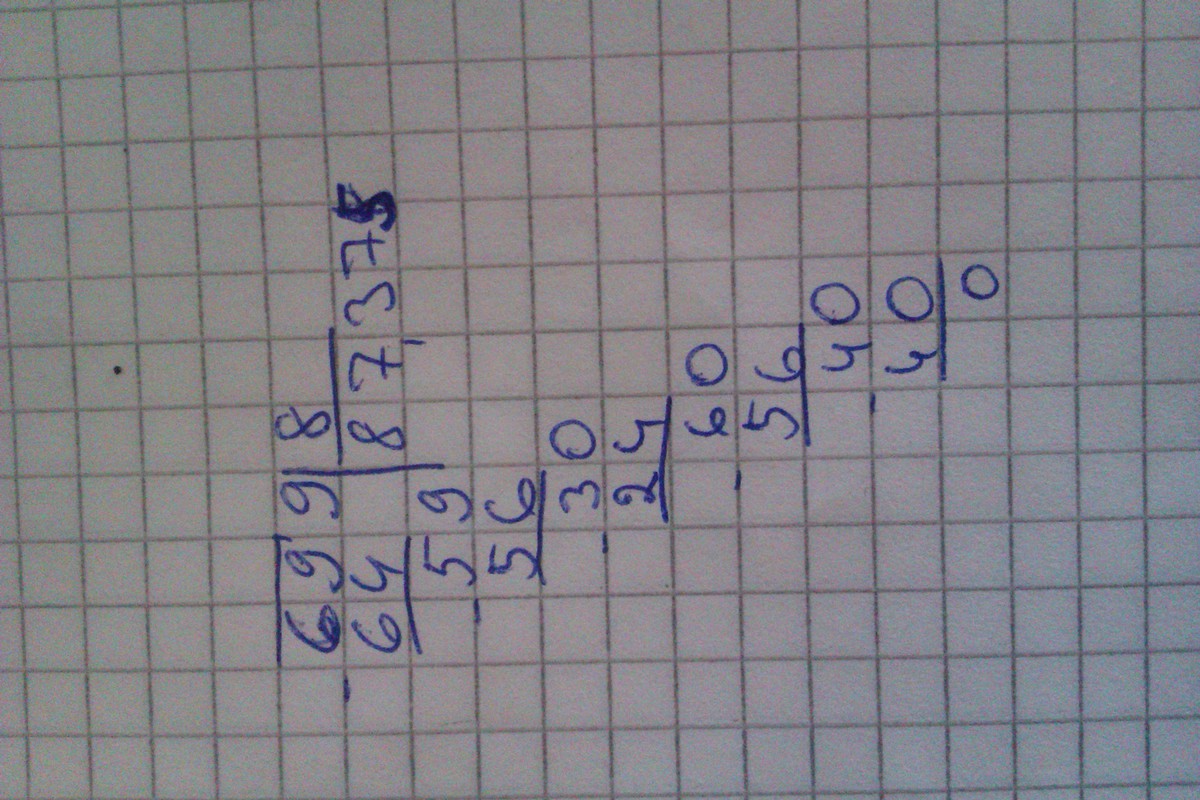 699 8
- 64 87,375
59
- 56
30
- 24
60
- 56
40
- 40
0